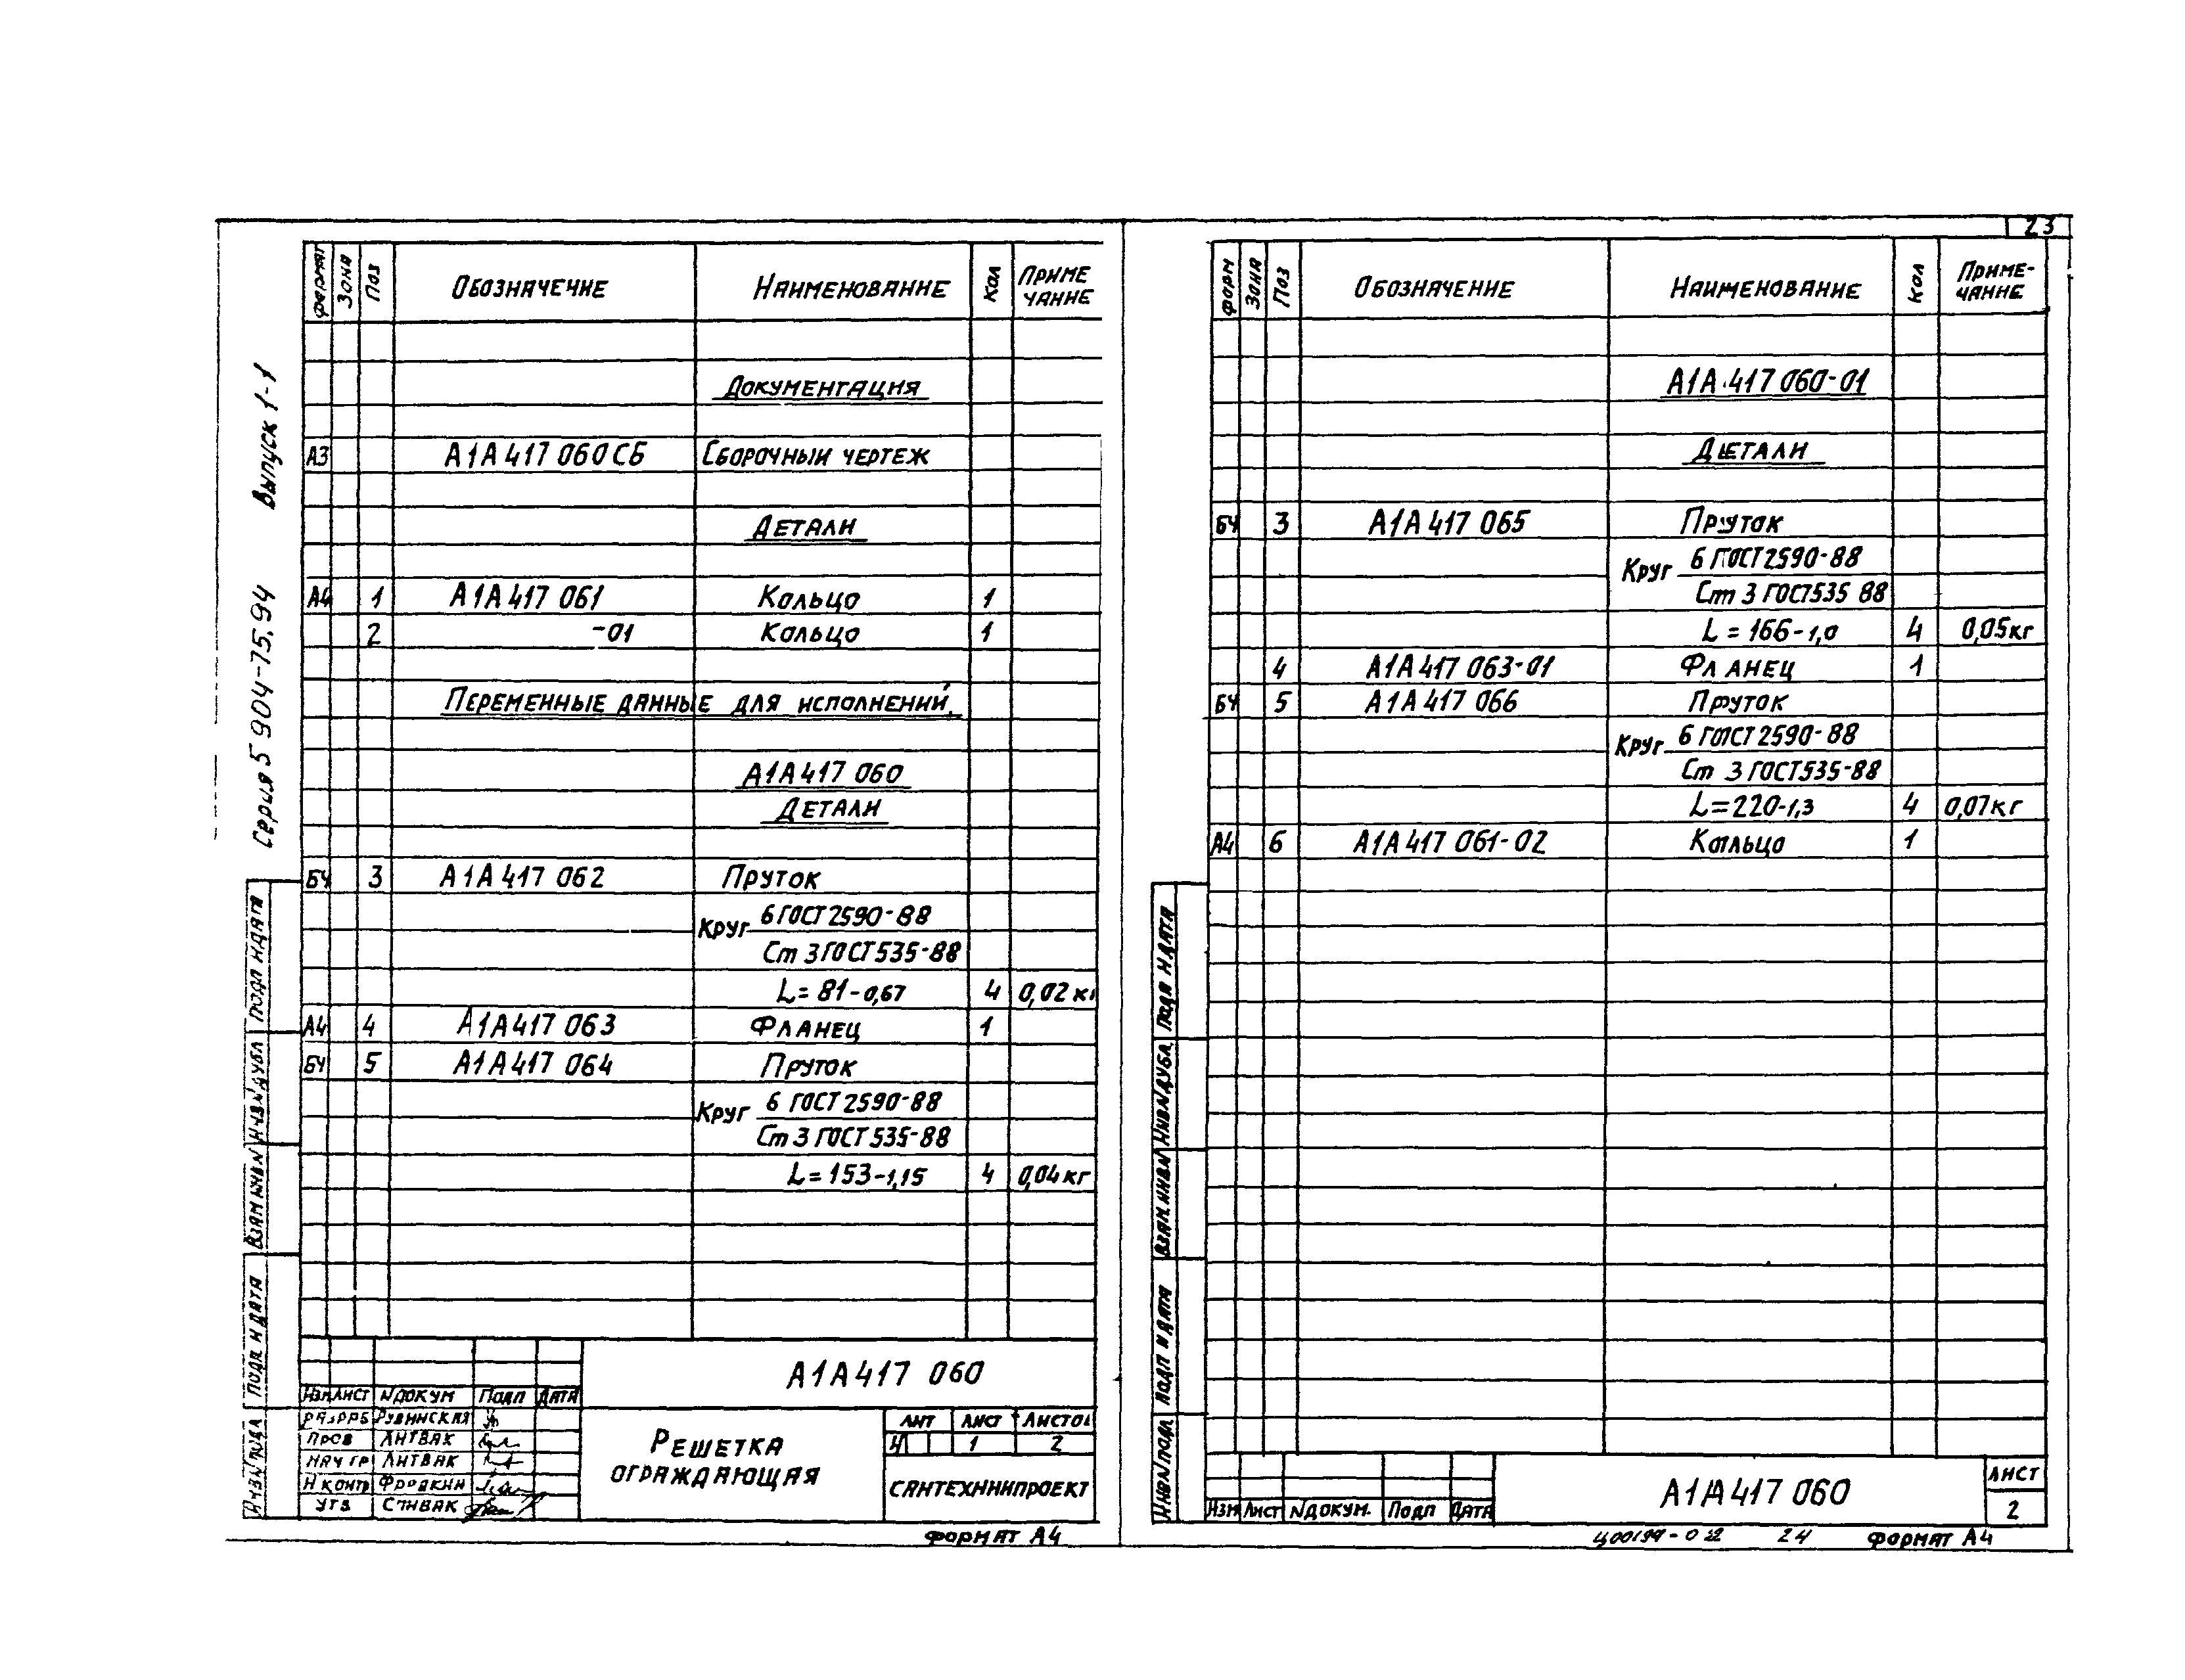 23
Выпуск 1-1
Серия 5 904-75.94
Формат Зона Поз Обозначение Наименование Кол Приме чание
Документация
А3 А1А 417 060 СБ Сборочный чертеж
Детали
А4 1 А1А 417 061 Кольцо 1
2 -01 Кольцо 1
Переменные данные для исполнений
А1А 417 060
Детали
БЧ 3 А1А 417 062 Пруток
Круг 6 ГОСТ 2590-88
Ст 3 ГОСТ 535-88
L = 81-0,67 4 0,02 кг
А4 4 А1А 417 063 Фланец 1
БЧ 5 А1А 417 064 Пруток
Круг 6 ГОСТ 2590-88
Ст 3 ГОСТ 535-88
L = 153-1,15 4 0,04 кг
Подп и дата
Инв N дубл
Взам инв N
Подп и дата
Инв N подл
А1А 417 060
Изм Лист N докум Подп Дата
Разраб Рувинская
Пров Литвак
Нач гр Литвак
Н контр Фрадкин
Утв Спивак
Решетка
ограждающая
Лит Лист Листов
И 1 2
Сантехниипроект
Формат А4
Форм Зона Поз Обозначение Наименование Кол Приме-
чание
А1А 417 060-01
Детали
БЧ 3 А1А 417 065 Пруток
Круг 6 ГОСТ 2590-88
Ст 3 ГОСТ 535 88
L = 166-1,0 4 0,05 кг
4 А1А 417 063-01 Фланец 1
БЧ 5 А1А 417 066 Пруток
Круг 6 ГОСТ 2590-88
Ст 3 ГОСТ 535-88
L = 220-1,3 4 0,07 кг
А4 6 А1А 417 061-02 Кольцо 1
Подп и дата
Инв N дубл.
Взам. инв N
Подп и дата
Инв N подл
Изм Лист N докум. Подп Дата
А1А 417 060
Лист
2
24 Формат А4